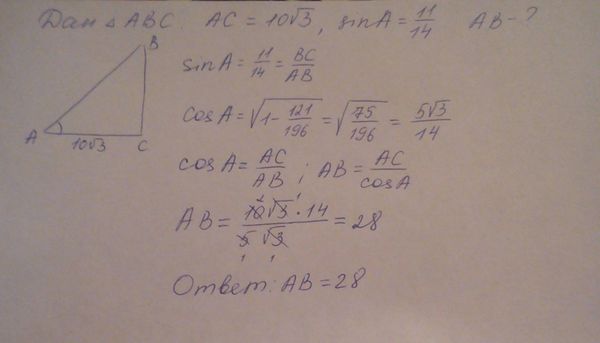 Дан △ ABC. AC = 10√3, sin A = 11/14 AB - ?
sin A = 11/14 = BC/AB
cos A = √(1 - 121/196) = √(75/196) = 5√3/14
cos A = AC/AB ; AB = AC/cos A
AB = 10√3 · 14 / 5√3 = 28
Ответ: AB = 28
B
A
10√3
C